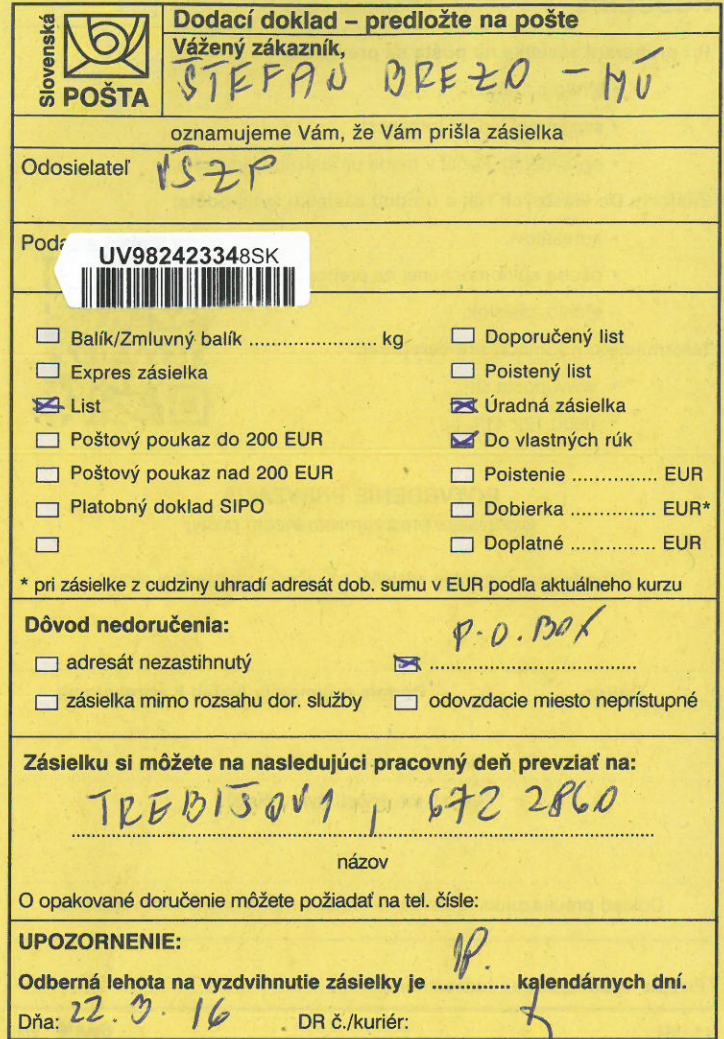 Slovenská
POŠTA
Dodací doklad – predložte na pošte
Vážený zákazník,
ŠTEFAN BREZO - MÚ
oznamujeme Vám, že Vám prišla zásielka
Odosielateľ VŠZP
Poda
UV982423348SK
Balík/Zmluvný balík ........................ kg
Doporučený list
Expres zásielka
Poistený list
List
Úradná zásielka
Poštový poukaz do 200 EUR
Do vlastných rúk
Poštový poukaz nad 200 EUR
Poistenie ............... EUR
Platobný doklad SIPO
Dobierka ............... EUR*
Doplatné ............... EUR
* pri zásielke z cudziny uhradí adresát dob. sumu v EUR podľa aktuálneho kurzu
Dôvod nedoručenia:
P.O.BOX
adresát nezastihnutý
zásielka mimo rozsahu dor. služby
odovzdacie miesto neprístupné
Zásielku si môžete na nasledujúci pracovný deň prevziať na:
TREBIŠOV 1, 672 2860
názov
O opakované doručenie môžete požiadať na tel. čísle:
UPOZORNENIE:
Odberná lehota na vyzdvihnutie zásielky je .............. kalendárnych dní.
Dňa: 22.3.16
DR č./kuriér: